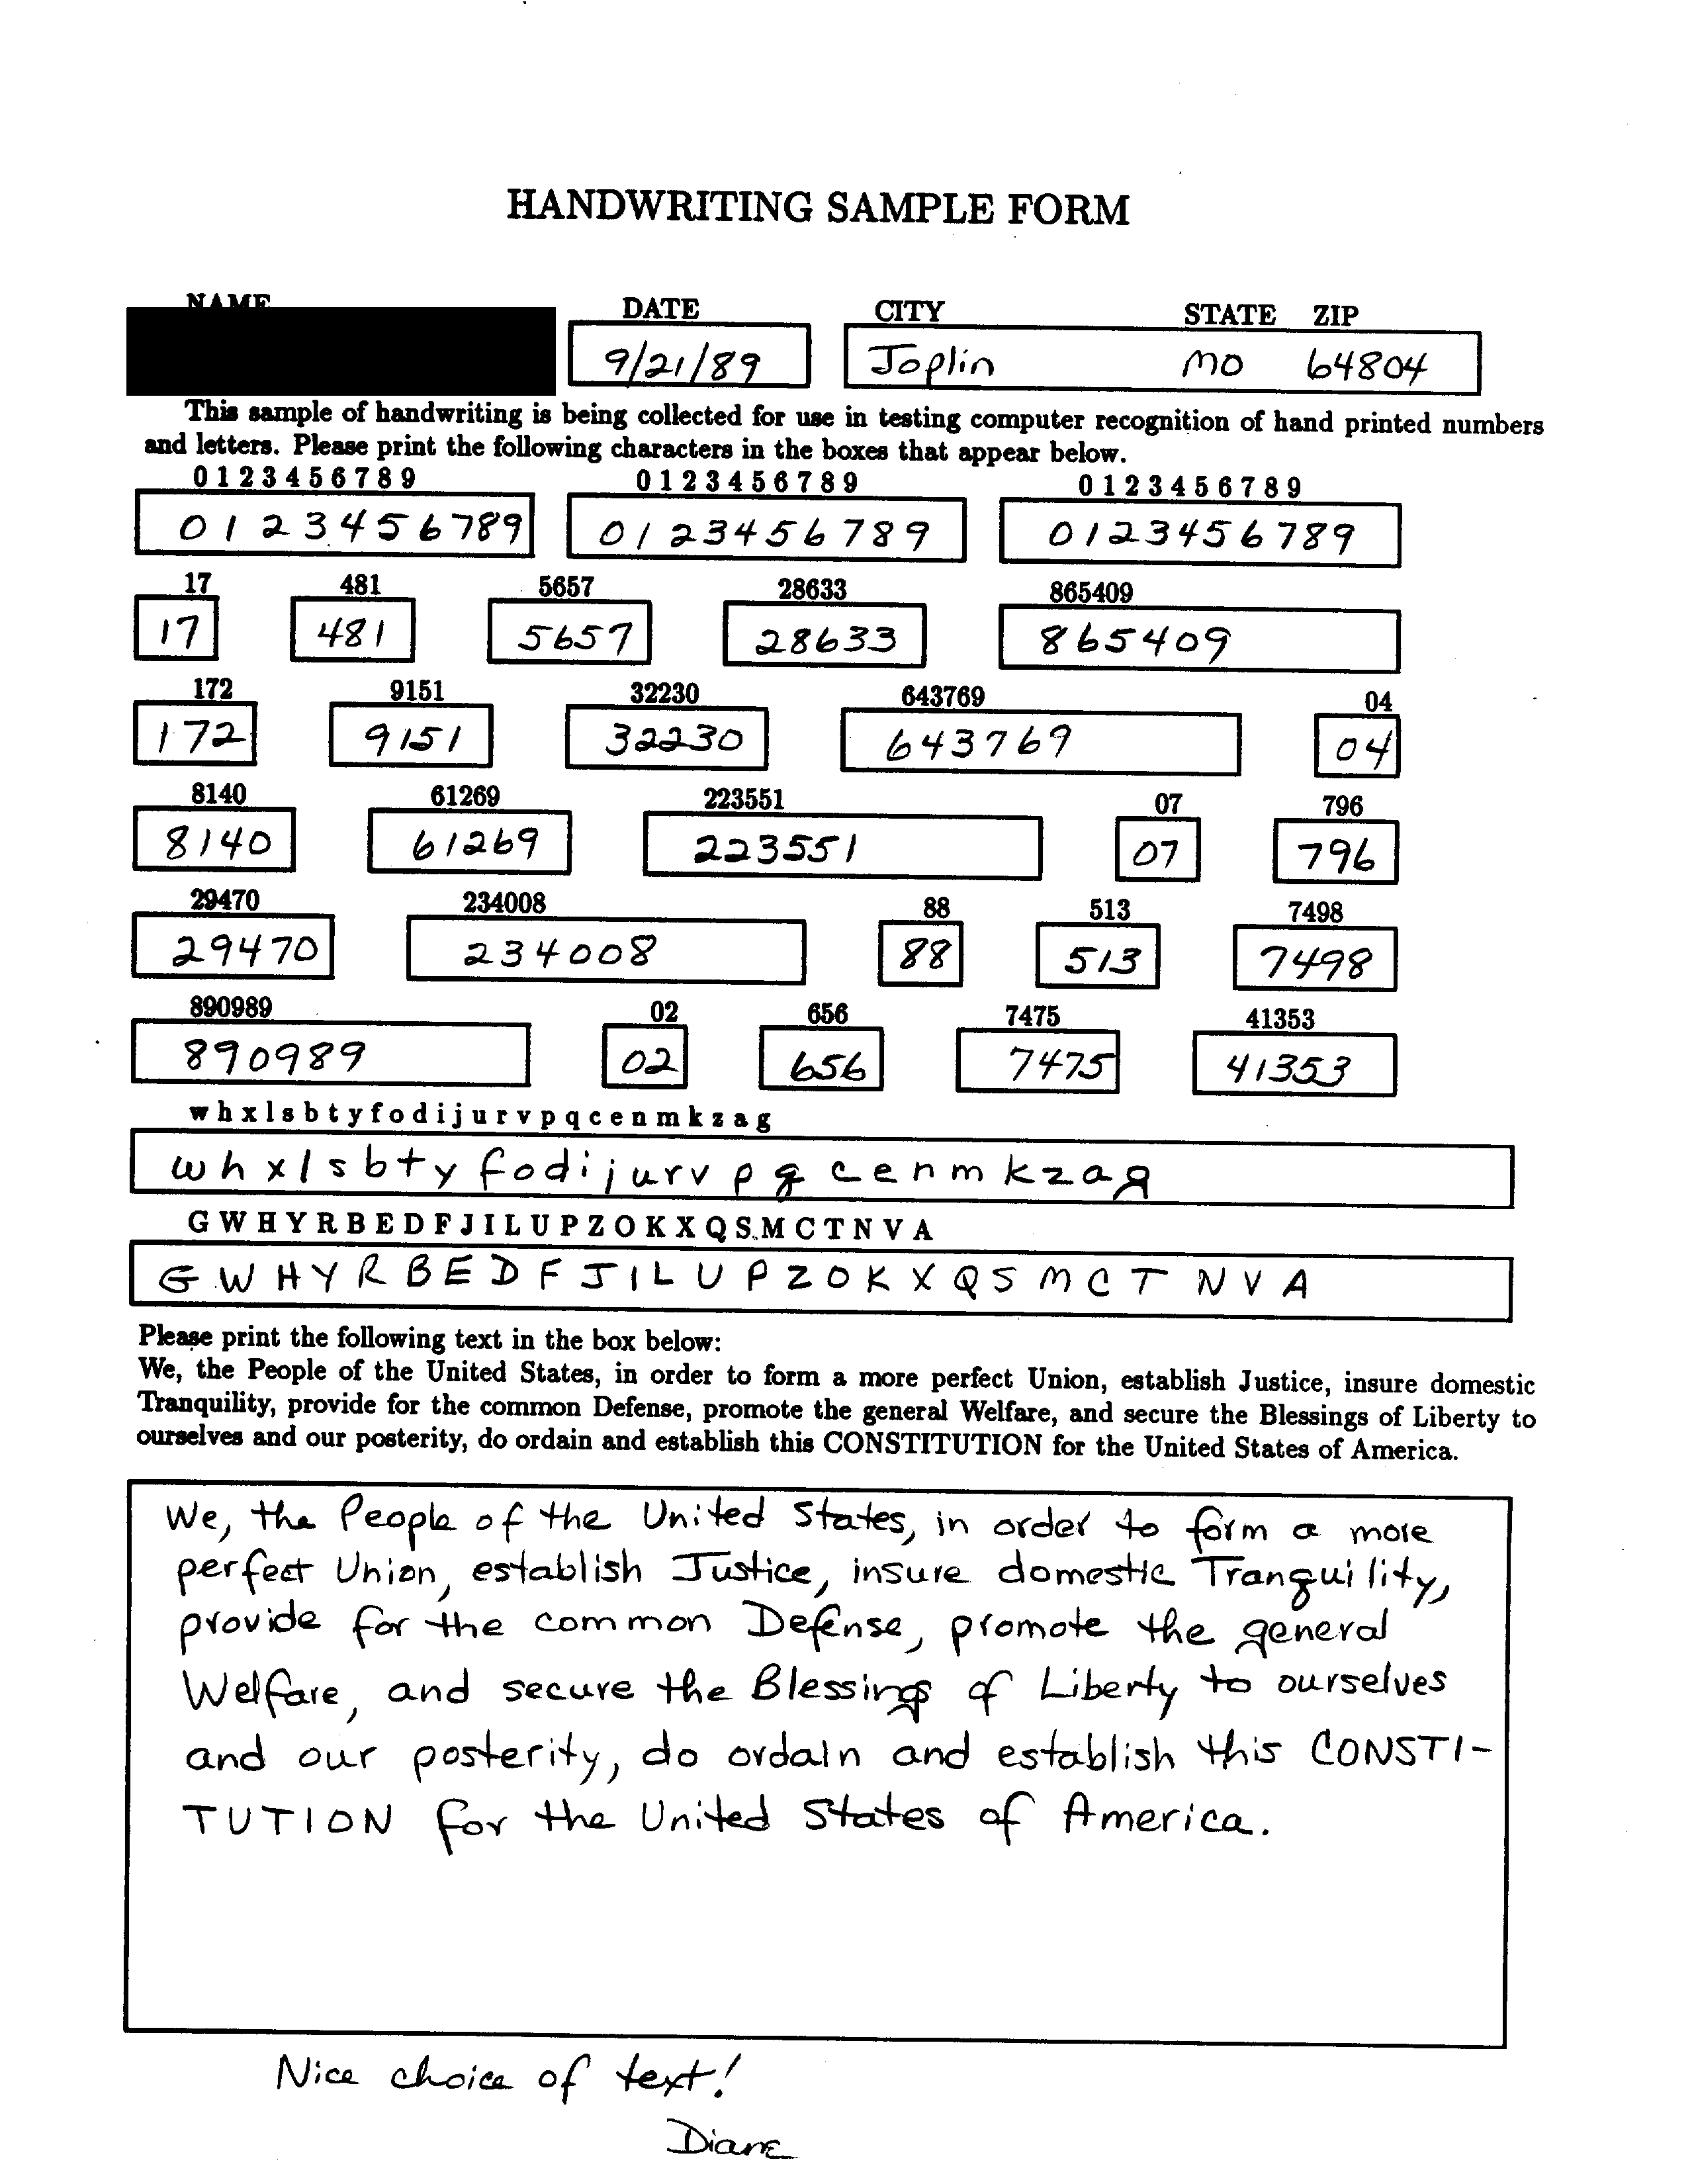 HANDWRITING SAMPLE FORM
NAME DATE CITY STATE ZIP
9/21/89 Joplin MO 64804
This sample of handwriting is being collected for use in testing computer recognition of hand printed numbers
and letters. Please print the following characters in the boxes that appear below.
0 1 2 3 4 5 6 7 8 9 0 1 2 3 4 5 6 7 8 9 0 1 2 3 4 5 6 7 8 9
0 1 2 3 4 5 6 7 8 9 0 1 2 3 4 5 6 7 8 9 0 1 2 3 4 5 6 7 8 9
17 481 5657 28633 865409
17 481 5657 28633 865409
172 9151 32230 643769 04
172 9151 32230 643769 04
8140 61269 223551 07 796
8140 61269 223551 07 796
29470 234008 88 513 7498
29470 234008 88 513 7498
890989 02 656 7475 41353
890989 02 656 7475 41353
w h x l s b t y f o d i j u r v p q c e n m k z a g
w h x l s b t y f o d i j u r v p q c e n m k z a g
G W H Y R B E D F J I L U P Z O K X Q S M C T N V A
G W H Y R B E D F J I L U P Z O K X Q S M C T N V A
Please print the following text in the box below:
We, the People of the United States, in order to form a more perfect Union, establish Justice, insure domestic
Tranquility, provide for the common Defense, promote the general Welfare, and secure the Blessings of Liberty to
ourselves and our posterity, do ordain and establish this CONSTITUTION for the United States of America.
We, the People of the United States, in order to form a more
perfect Union, establish Justice, insure domestic Tranquility,
provide for the common Defense, promote the general
Welfare, and secure the Blessings of Liberty to ourselves
and our posterity, do ordain and establish this CONSTI-
TUTION for the United States of America.
Nice choice of text!
Diane